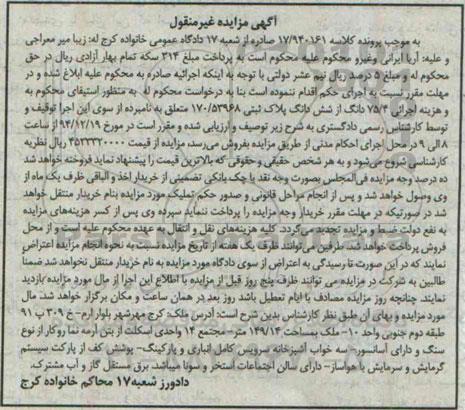 آگهی مزایده غیرمنقول
به موجب پرونده کلاسه ۱۷/۹۴۰۱۶۱ صادره از شعبه ۱۷ دادگاه عمومی خانواده کرج له: زیبا میر معراجی
و علیه: آریا ایرانی وغیرو محکوم علیه محکوم است به پرداخت مبلغ ۳۱۴ سکه تمام بهار آزادی ریال در حق
محکوم له و مبلغ ۵ درصد ریال نیم عشر دولتی با توجه به اینکه اجرائیه صادره به محکوم علیه ابلاغ شده و در
مهلت مقرر نسبت به اجرای حکم اقدام ننموده است بنا به درخواست محکوم له و به منظور استیفای محکوم به
و هزینه اجرائی ۷۵/۴ دانگ از شش دانگ پلاک ثبتی ۱۷۰/۵۳۹۶۸ متعلق به نامبرده از سوی این اجرا توقیف و
توسط کارشناس رسمی دادگستری به شرح زیر توصیف و ارزیابی شده و مقرر است در مورخ ۹۴/۱۲/۱۹ از ساعت
۸ الی ۹ در محل اجرای احکام مدنی از طریق مزایده بفروش می‌رسد، مزایده از قیمت ۴۵۲۳۳۲۰۰۰۰ ریال نظریه
کارشناسی شروع می‌شود و به هر شخص حقیقی و حقوقی که بالاترین قیمت را پیشنهاد نماید فروخته خواهد شد
ده درصد وجه مزایده فی‌المجلس بصورت وجه نقد یا چک بانکی تضمینی از خریدار اخذ و الباقی ظرف یک ماه از
وی وصول خواهد شد و پس از انجام مراحل قانونی و صدور حکم تملیک مورد مزایده بنام خریدار منتقل خواهد
شد در صورتیکه در مهلت مقرر خریدار وجه مزایده را پرداخت ننماید سپرده وی پس از کسر هزینه‌های مزایده
به نفع دولت ضبط و مزایده تجدید می‌گردد. کلیه هزینه‌های نقل و انتقال به عهده محکوم علیه است و از محل
فروش پرداخت خواهد شد. طرفین می‌توانند ظرف یک هفته از تاریخ مزایده نسبت به نحوه انجام مزایده اعتراض
نمایند که در این صورت تا رسیدگی به اعتراض از سوی دادگاه مورد مزایده به نام خریدار منتقل نخواهد شد ضمناً
طالبین به شرکت در مزایده می توانند ظرف پنج روز قبل از مزایده با اطلاع این اجرا از مال مورد مزایده بازدید
نمایند. چنانچه روز مزایده مصادف با ایام تعطیل باشد روز بعد در همان ساعت و مکان برگزار خواهد شد. مال
مورد مزایده و بهای آن طبق نظر کارشناس بدین شرح است: آدرس ملک: کرج مهرشهر بلوار ارم- خ ۳۰۹ پ ۹۱
طبقه دوم جنوبی واحد ۱۰- ملک بمساحت ۱۴۹/۱۴ متر- مجتمع ۱۴ واحدی اسکلت از بتن آرمه نما روکار از نوع
سنگ و دارای آسانسور- سه خواب آشپزخانه سرویس کامل انباری و پارکینگ- پوشش کف از پارکت سیستم
گرمایش و سرمایش با هواساز- دارای سالن اجتماعات استخر و سونا میباشد. برق مستقل گاز و آب مشترک.
دادورز شعبه ۱۷ محاکم خانواده کرج